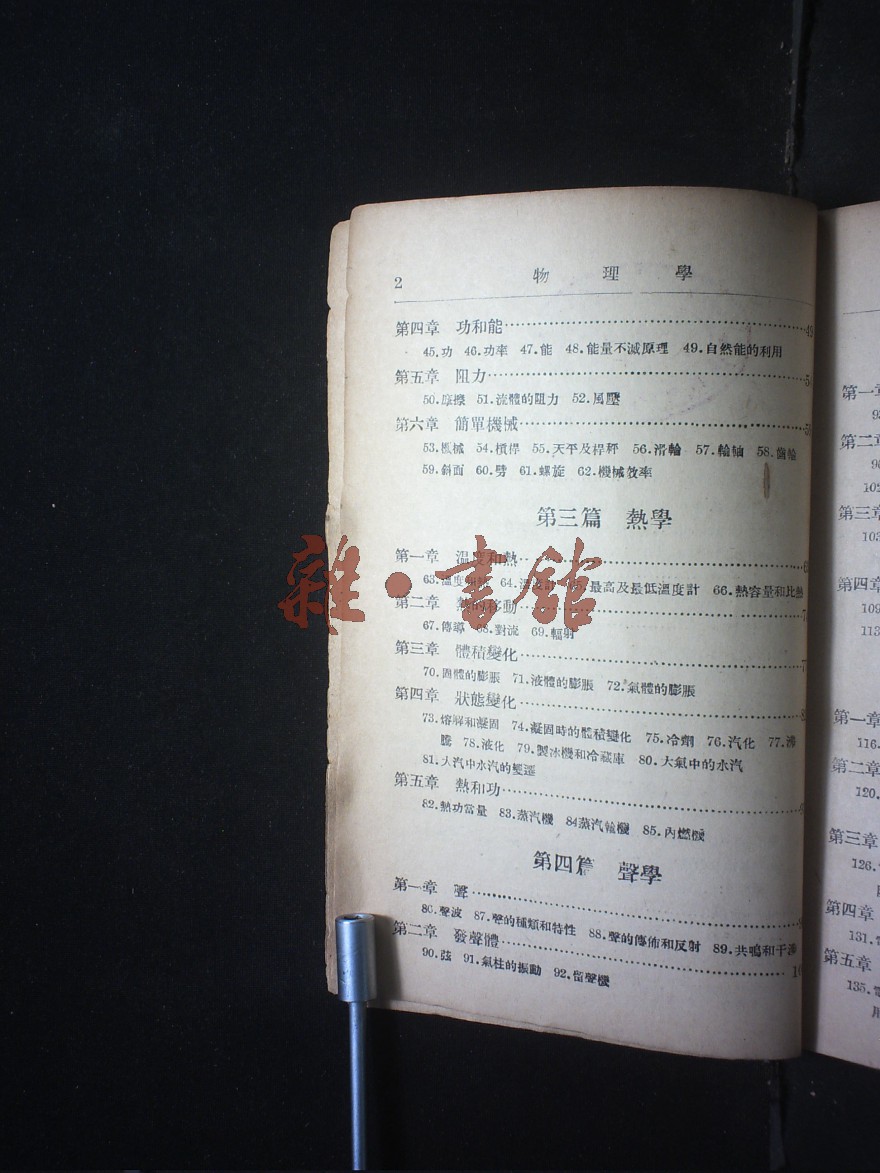 2 物理學
第四章 功和能 49
45.功 46.功率 47.能 48.能量不滅原理 49.自然能的利用
第五章 阻力
50.摩擦 51.流體的阻力 52.風壓
第六章 簡單機械
53.機械 54.槓桿 55.天平及桿秤 56.滑輪 57.輪軸 58.齒輪
59.斜面 60.劈 61.螺旋 62.機械效率
第三篇 熱學
第一章 溫度和熱
63.溫度 64.溫度計 65.最高及最低溫度計 66.熱容量和比熱
第二章 熱的移動
67.傳導 68.對流 69.輻射
第三章 體積變化
70.固體的膨脹 71.液體的膨脹 72.氣體的膨脹
第四章 狀態變化
73.熔解和凝固 74.凝固時的體積變化 75.冷劑 76.汽化 77.沸
騰 78.液化 79.製冰機和冷藏庫 80.大氣中的水汽
81.大汽中水汽的變遷
第五章 熱和功
82.熱功當量 83.蒸汽機 84蒸汽輪機 85.內燃機
第四篇 聲學
第一章 聲
86.聲波 87.聲的種類和特性 88.聲的傳佈和反射 89.共鳴和干涉
第二章 發聲體
90.弦 91.氣柱的振動 92.留聲機
雜·書館
第一章
第二章
102
第三章
103
第四章
109
113
第一章
116.
第二章
120.
第三章
126.
第四章
131.
第五章
135.